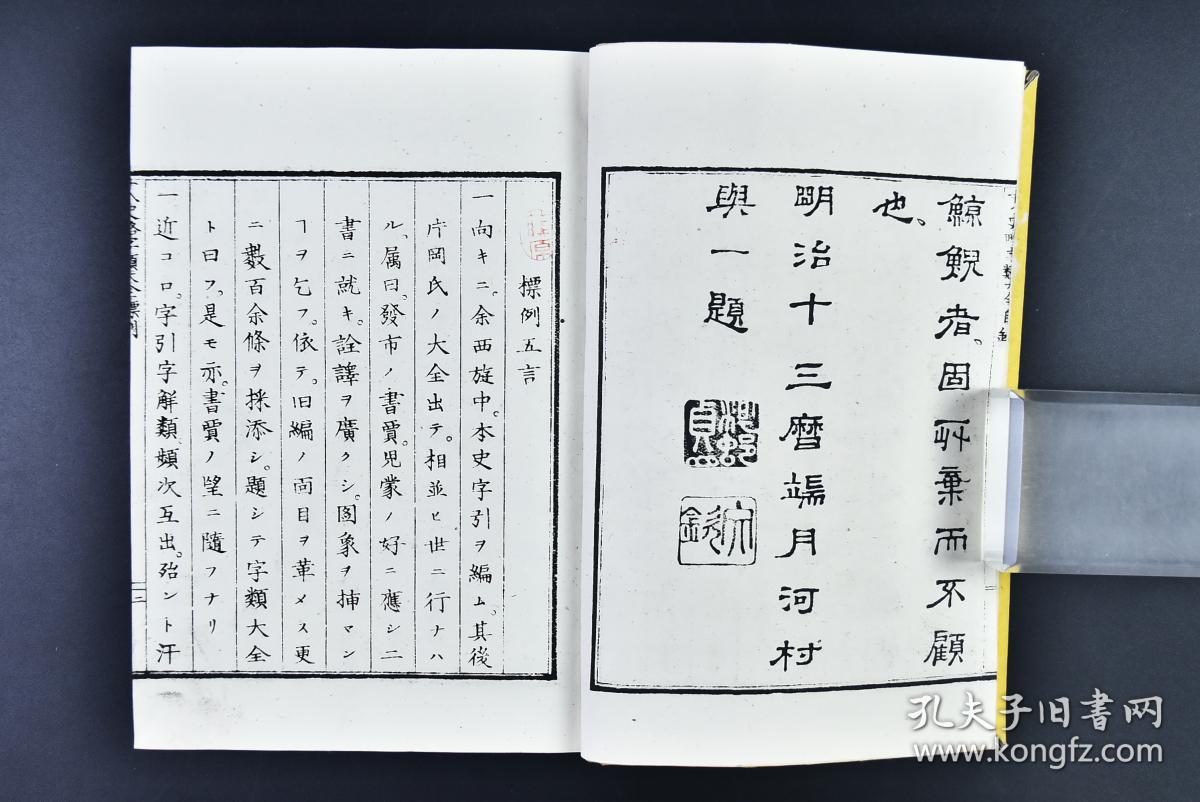 鯨鯢者、固艸棄而不顧
也、
明治十三曆端月河村
與一題
標例五言
一向キニ。余西旋中。本史字引ヲ編ム。其後
片岡氏ノ大全出テ。相並ヒ世ニ行ナハ
ル。属曰。發市ノ書賈。児蒙ノ好ニ應シ二
書ニ就キ。詮譯ヲ廣クシ。圖象ヲ挿マン
ヿヲ乞フ。依テ。旧編ノ両目ヲ革メス更
ニ數百余條ヲ採添シ。題シテ字類大全
ト曰フ。是モ亦。書賈ノ望ニ隨フナリ
一近コロ。字引字解類。頻次互出。殆ント汗
二
孔夫子旧书网
www.kongfz.com